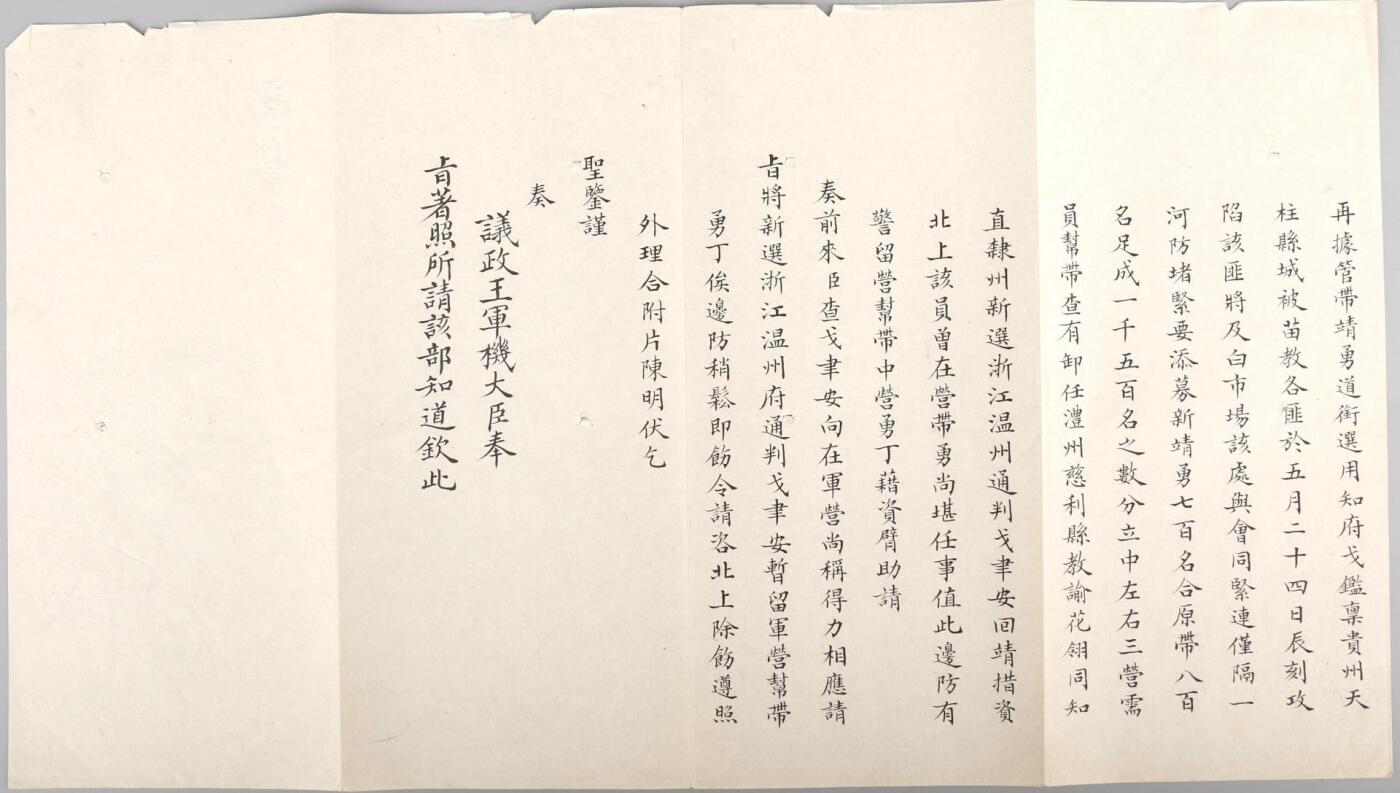 再據管帶靖勇道銜選用知府戈鑑稟貴州天
柱縣城被苗教各匪於五月二十四日辰刻攻
陷該匪將及白市場該處與會同緊連僅隔一
河防堵緊要添募新靖勇七百名合原帶八百
名足成一千五百名之數分立中左右三營需
員幫帶查有卸任澧州慈利縣教諭花翎同知
直隸州新選浙江温州通判戈聿安回靖措資
北上該員曾在營帶勇尚堪任事值此邊防有
警留營幫帶中營勇丁藉資臂助請
奏前來臣查戈聿安向在軍營尚稱得力相應請
旨將新選浙江温州府通判戈聿安暫留軍營幫帶
勇丁俟邊防稍鬆即飭令請咨北上除飭遵照
外理合附片陳明伏乞
聖鑒謹
奏
議政王軍機大臣奉
旨著照所請該部知道欽此